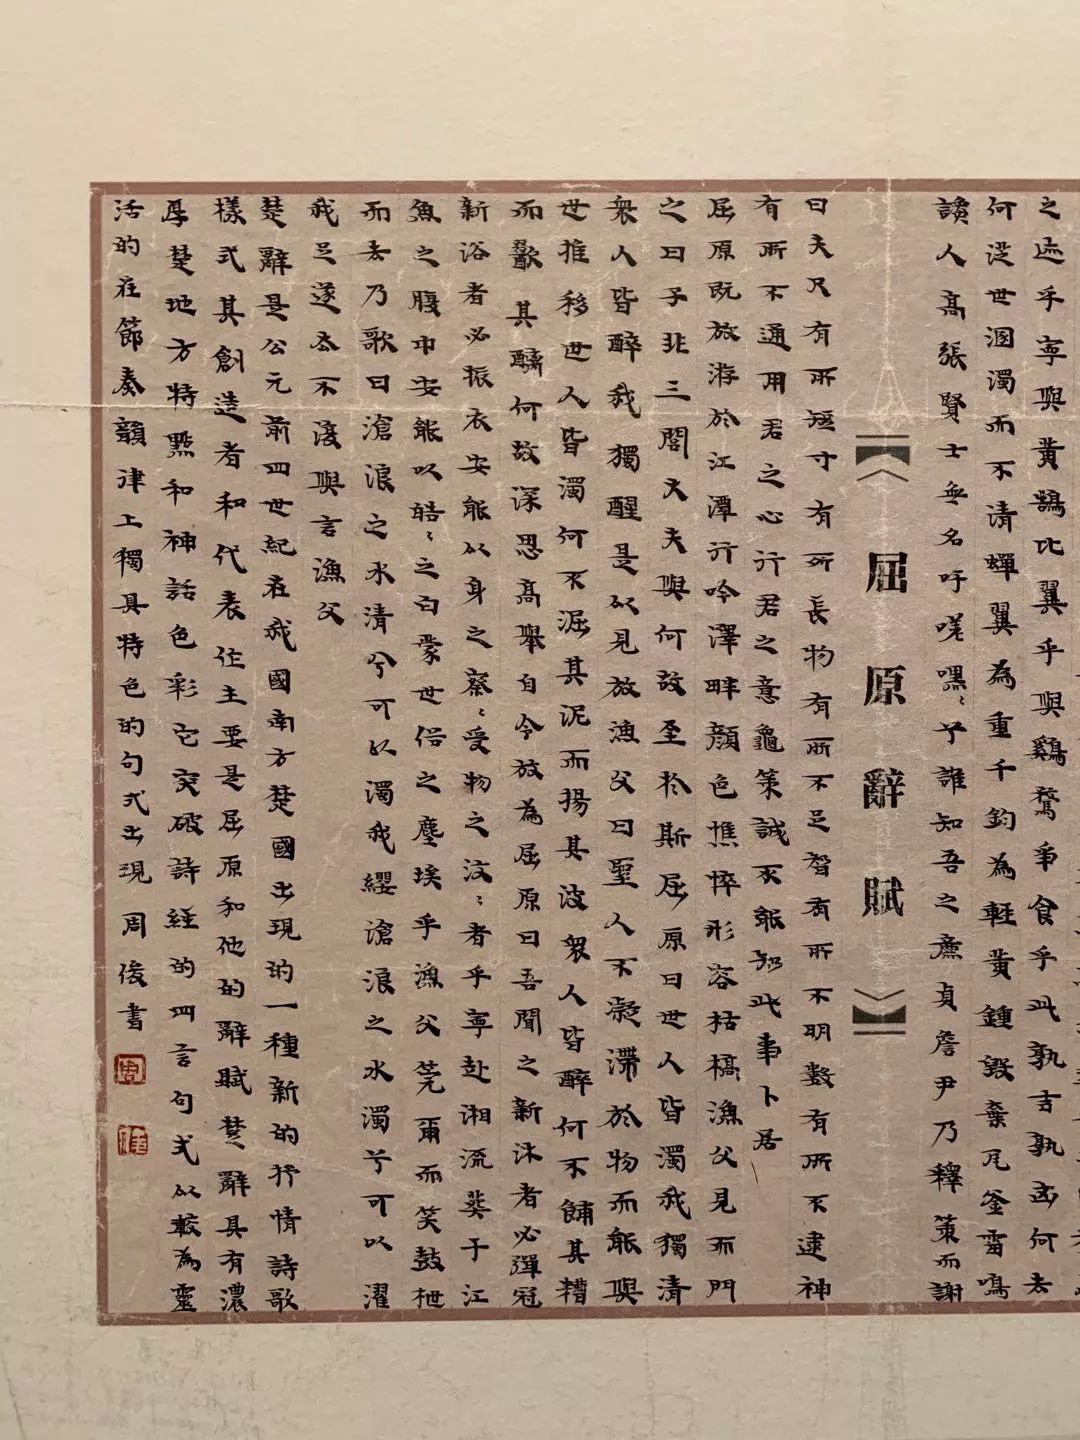 之迹乎寧與黃鵠比翼乎與鷄鶩爭食乎此孰吉孰凶何去
何從世溷濁而不清蟬翼為重千鈞為輕黃鍾毀棄瓦釜雷鳴
讒人高張賢士無名吁嗟嘿〻乎誰知吾之廉貞詹尹乃釋策而謝
屈原辭賦
曰夫尺有所短寸有所長物有所不足智有所不明數有所不逮神
有所不通用君之心行君之意龜策誠不能知此事卜居
屈原既放游於江潭行吟澤畔顏色憔悴形容枯槁漁父見而問
之曰子非三閭大夫與何故至於斯屈原曰世人皆濁我獨清
衆人皆醉我獨醒是以見放漁父曰聖人不凝滯於物而能與
世推移世人皆濁何不淈其泥而揚其波衆人皆醉何不餔其糟
而歠其醨何故深思高舉自令放為屈原曰吾聞之新沐者必彈冠
新浴者必振衣安能以身之察〻受物之汶〻者乎寧赴湘流葬于江
魚之腹中安能以皓〻之白蒙世俗之塵埃乎漁父莞爾而笑鼓枻
而去乃歌曰滄浪之水清兮可以濯我纓滄浪之水濁兮可以濯
我足遂去不復與言漁父
楚辭是公元前四世紀在我國南方楚國出現的一種新的抒情詩歌
樣式其創造者和代表作主要是屈原和他的辭賦楚辭具有濃
厚楚地方特點和神話色彩它突破詩經的四言句式以較為靈
活的在節奏韻律上獨具特色的句式出現周俊書